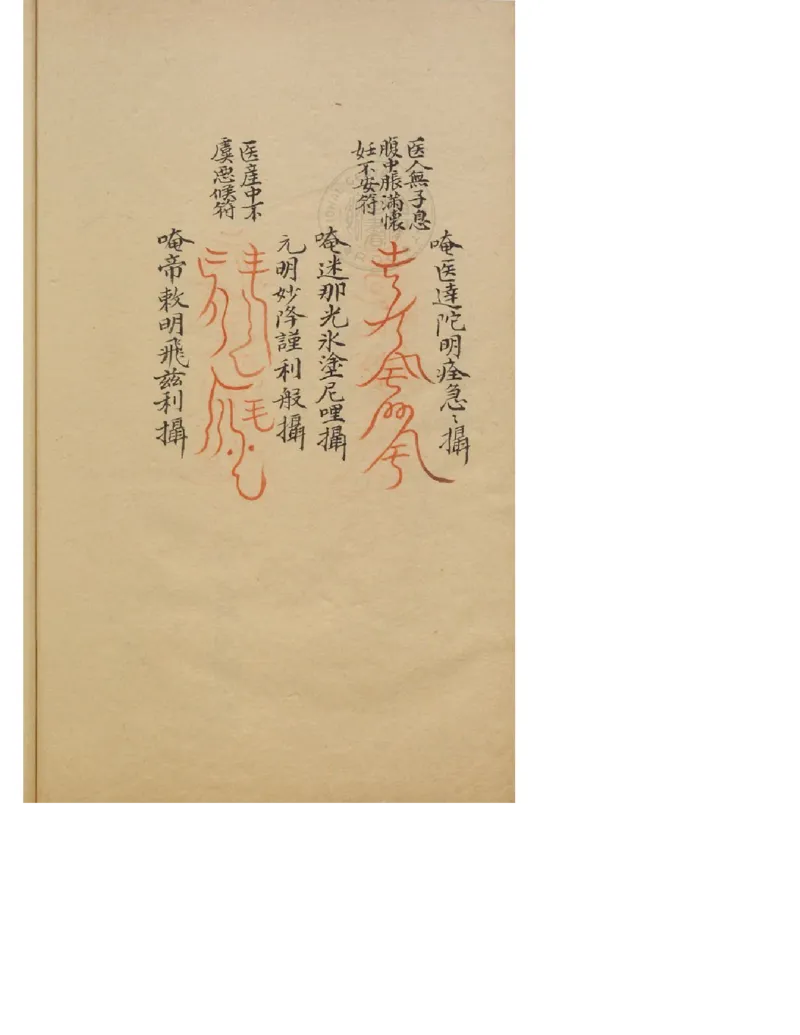 医人無子息
腹中脹滿懷
妊不安符
唵医達陀明痊急〻攝
唵迷那光氷塗尼哩攝
医産中不
虞思候符
元明妙降謹利般攝
唵帝敕明飛茲利攝